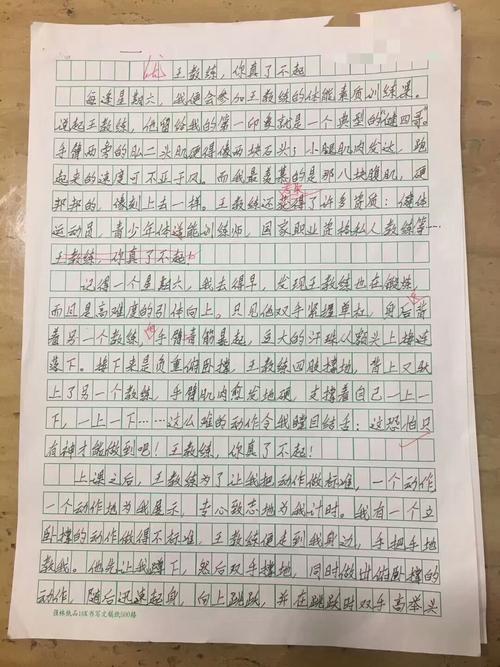 优
王教练，你真了不起
每逢星期六，我便会参加王教练的体能素质训练课。
说起王教练，他留给我的第一印象就是一个典型的“健四哥”。
手臂两旁的肱二头肌硬得像两块石头；小腿肌肉发达，跑
起来的速度可不亚于风。而我最羡慕的是那八块腹肌，硬
邦邦的，像刻上去一样。王教练还获得了许多资质：健体
运动员，青少年体适能训练师，国家职业资格私人教练等……
王教练，你真了不起！
记得一个星期六，我去得早，发现王教练也在锻炼，
而且是高难度的引体向上。只见他双手紧握单杠，身后背
着另一个教练，手臂青筋暴起，豆大的汗珠从额头上接连
落下。接下来是负重俯卧撑，王教练四肢撑地，背上又驮
上了另一个教练，手臂肌肉愈发地硬，支撑着自己一上一
下，一上一下……这么难的动作令我瞠目结舌：这恐怕只
有神才能做到吧！王教练，你真了不起！
上课之后，王教练为了让我把动作做标准，一个动作
一个动作地为我展示，专心致志地为我计时。我有一个立
卧撑的动作做得不标准，王教练便走到我身边，手把手地
教我。他先让我蹲下，然后双手撑地，同时做出俯卧撑的
动作，随后迅速起身，向上跳跃，并在跳跃时双手高举头
强林纸品16K书写文稿纸500格